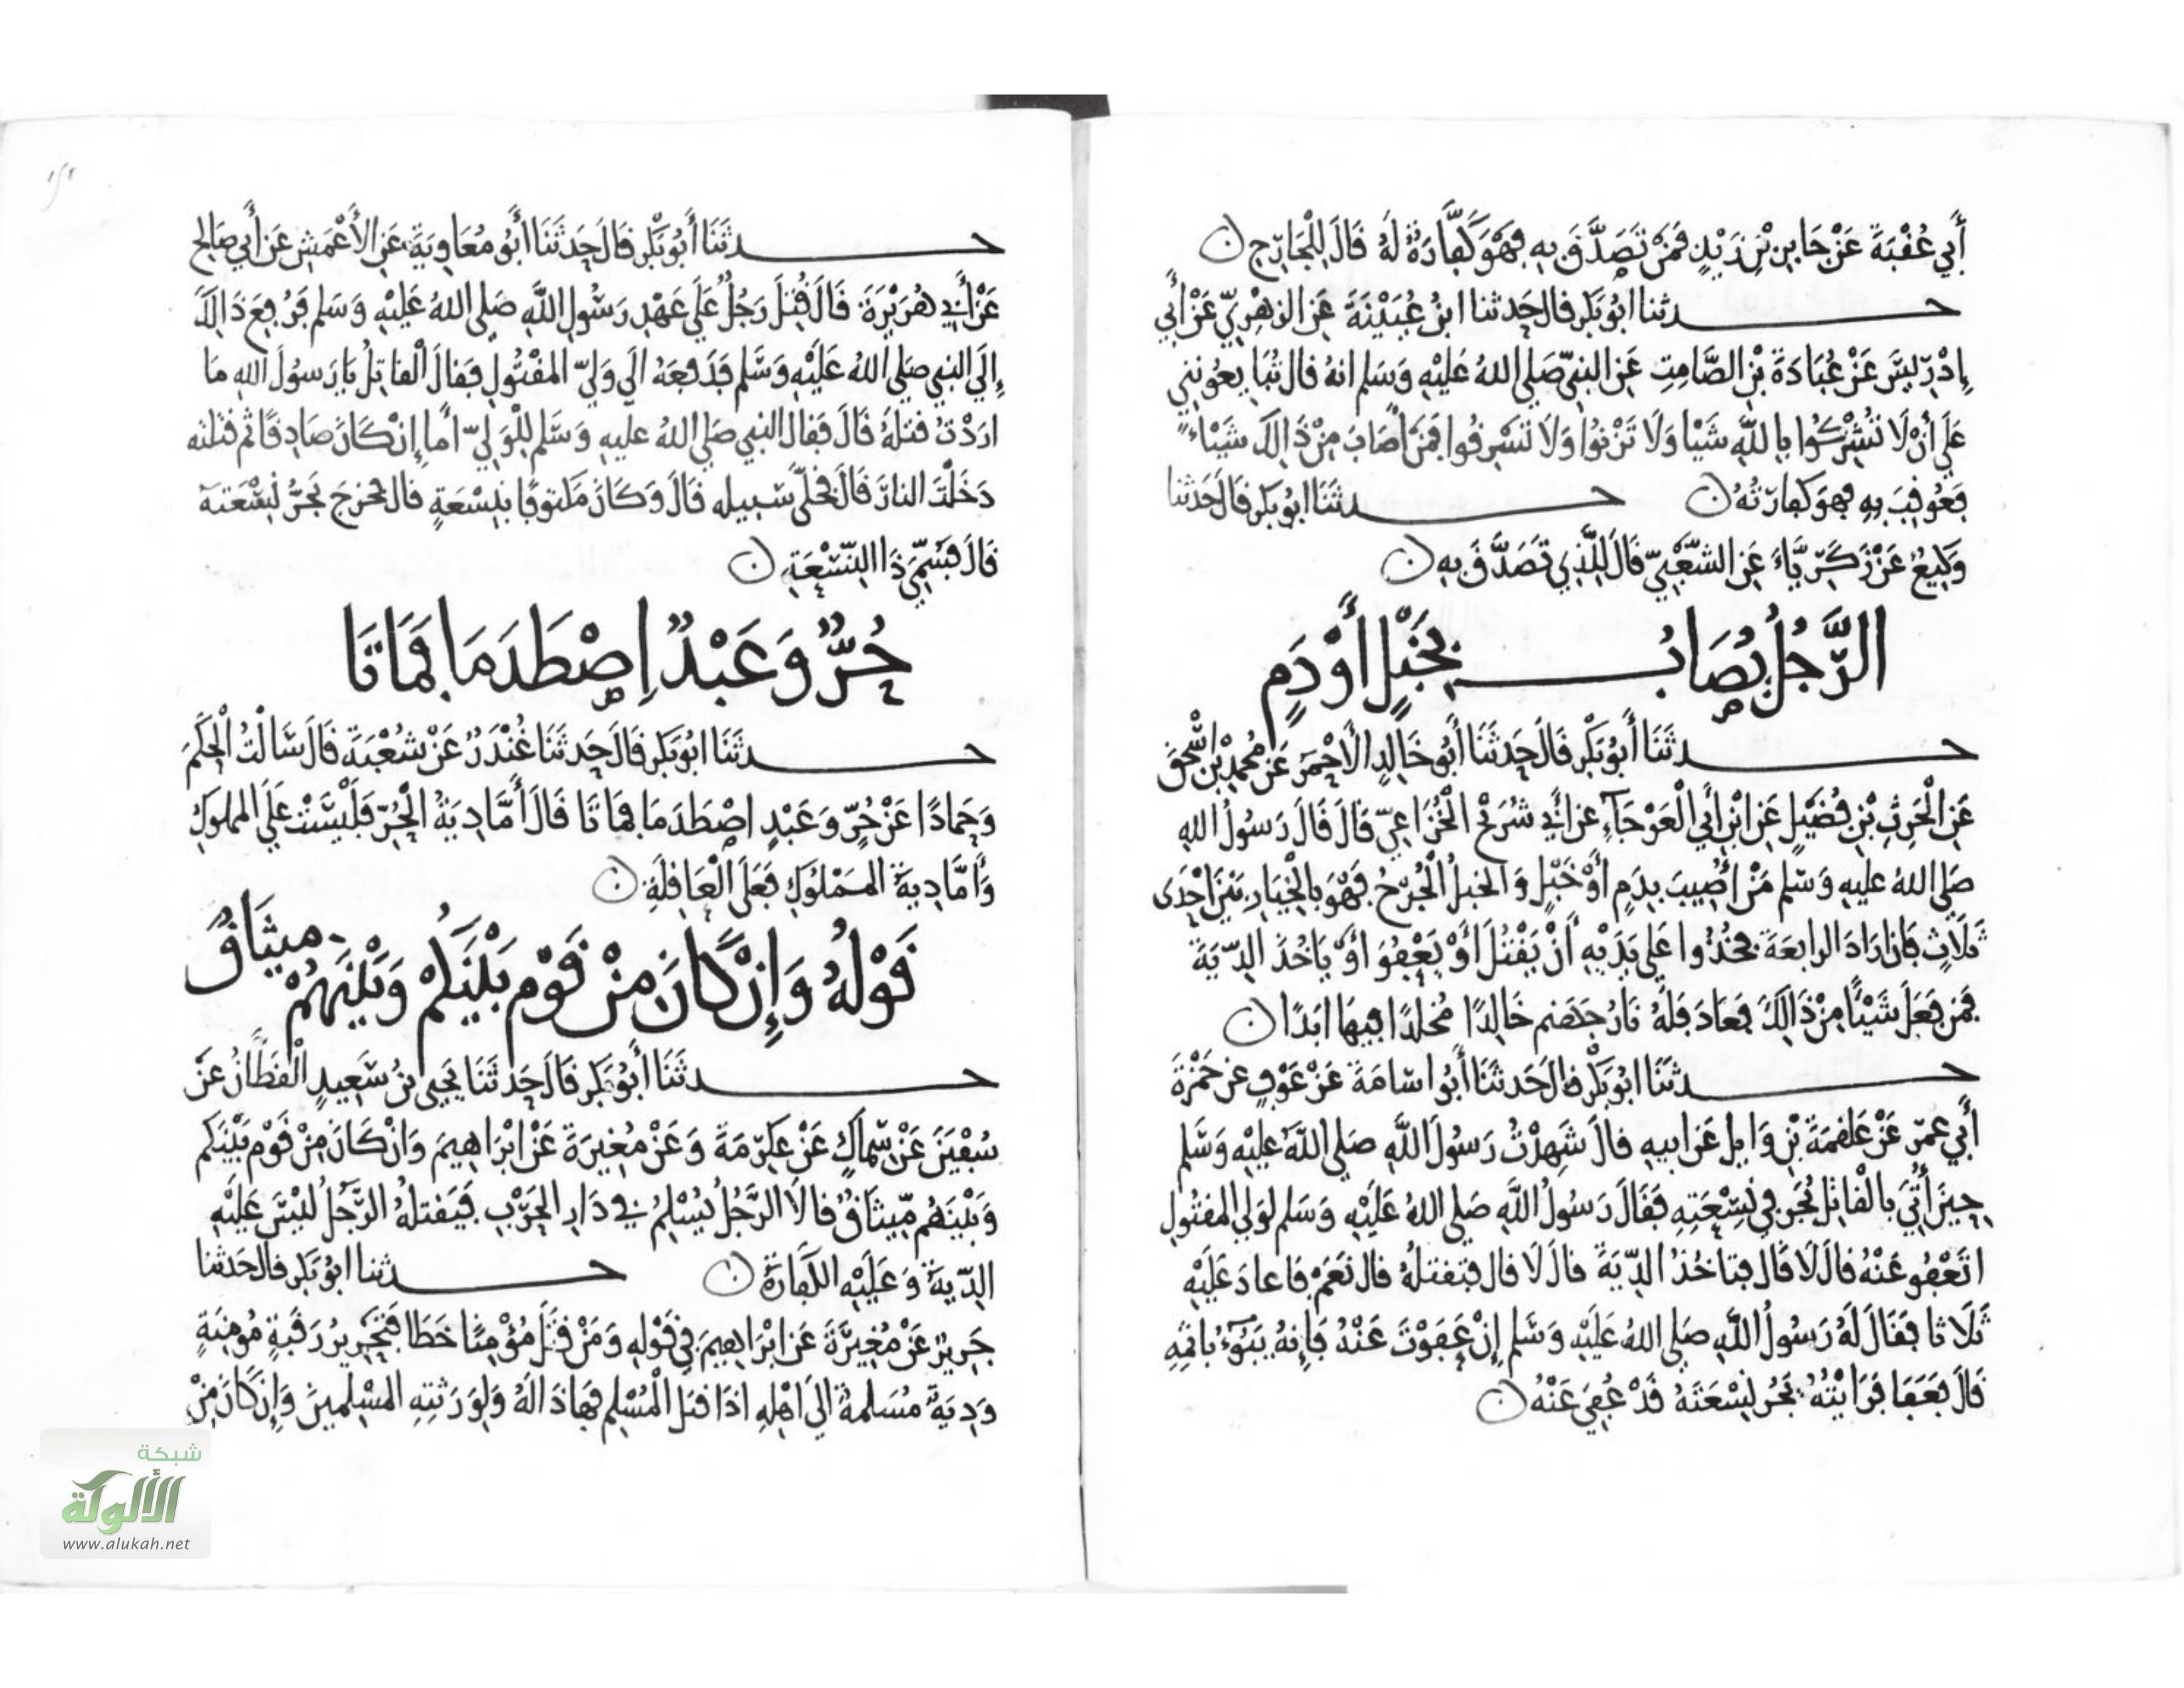 أَبِي عُقْبَةَ عَنْ جَابِرِ بْنِ زَيْدٍ فَمَنْ تَصَدَّقَ بِهِ فَهْوَ كَفَّارَةٌ لَهُ قَالَ لِلْجَارِحِ
حدثنا ابُو بَكرٍ قال حَدثنا ابنُ عُيَيْنَةَ عَنِ الزهْرِيِّ عَنْ أَبِي
إِدْرِيسَ عَنْ عُبَادَةَ بْنِ الصَّامِتِ عَنِ النبيِّ صَلى اللهُ عَليْهِ وَسَلم انهُ قال تُبَايِعُونِي
عَلَى أنْ لَا تُشْرِكُوا بِاللَّهِ شَيْا وَلَا تَزْنُوا وَلَا تَسْرِقُوا فَمَنْ أَصَابَ مِنْ ذَالِكَ شَيْاءً
فَعُوقِبَ بِهِ فهوَ كفارَتُهُ حدثَنَا ابُو بَكرٍ قَالَ حَدثنا
وَكِيعٌ عَنْ زَكَرِيَّاءَ عَنِ الشَّعْبِيِّ قَالَ لِلَّذِي تَصَدَّقَ بِهِ
الرَّجُلُ يُصَابُ بِخَبْلٍ أَوْ دَمٍ
حدثَنَا أَبُو بَكْرٍ قَالَ حَدثَنَا أَبُو خَالِدٍ الأَحْمَرُ عَنْ مُحمدِ بْنِ إِسْحقَ
عَنِ الْحَرِثِ بْنِ فُضَيْلٍ عَنِ ابْنِ أَبِي الْعَوْجَآءِ عن أَبِي شُرَيْحٍ الْخُزَاعِيِّ قَالَ قَالَ رَسُولُ اللهِ
صَلى اللهُ عليهِ وَسَلم مَنْ أُصِيبَ بِدَمٍ أَوْ خَبْلٍ وَالخبلُ الْجُرْحُ فَهْوَ بِالْخِيَارِ بَيْنَ احْدَى
ثَلَاثٍ فَان ارَادَ الرابعَةَ فخُذُوا عَلَى يَدَيْهِ أَنْ يَقْتُلَ أَوْ يَعْفُوَ اوْ يَاخُذَ الدِّيَةَ
فمَن فَعَلَ شَيْئًا مِنْ ذَالِكَ فعَادَ فَلهُ نَارُ جَهَنم خَالِدًا مُخلدًا فِيهَا ابَدًا
حدثَنَا ابُو بَكْرٍ قالَ حَدثَنَا أَبُو اسَامَةَ عَنْ عَوْفٍ عن حَمْزَةَ
أَبِي عمَر عَنْ عَلقَمَةَ بْنِ وَايِلٍ عَن ابيهِ قالَ شَهِدْتُ رَسُولَ اللَّهِ صَلى اللَّهُ عَليْهِ وَسَلم
حِينَ أُتِيَ بِالْقَاتِلِ يُجَرُّ فِي نِسْعَتِهِ فَقَالَ رَسُولُ اللَّهِ صَلى اللهُ عَلَيْهِ وَسَلم لوَلي المقتُولِ
اتَعْفُو عَنْهُ قَالَ لَا قَالَ فتاخُذُ الدِّيَةَ قالَ لَا قال فتَقتلهُ قال نَعَمْ فَاعادَ عَلَيْهِ
ثَلَاثا فقَالَ لَهُ رَسُولُ اللَّهِ صَلى اللهُ عَلَيْهِ وَسَلم إِنْ عَفَوْتَ عَنْهُ فَإِنهُ يَبُوءُ باثمِهِ
قَالَ فعَفَا فَرَايْتُهُ يَجُرُّ نِسْعَتَهُ قَدْ عُفِيَ عَنْهُ
حدثَنَا أَبُو بَكْرٍ قَالَ حَدثَنَا أَبُو مُعَاوِيَةَ عَنِ الأَعْمَشِ عَنْ أَبِي صَالح
عَنْ أَبِي هُرَيْرَةَ قَالَ قُتِلَ رَجُلٌ عَلَى عَهْدِ رَسُولِ اللَّهِ صَلى اللهُ عَلَيْهِ وَسَلم فَرُفِعَ ذَالِكَ
إِلَى النبي صَلى اللهُ عَلَيْهِ وَسَّلم فَدَفعَهُ الَى وَلِيِّ المقْتُولِ فَقالَ الْقَاتِلُ يَا رَسُولَ اللهِ مَا
ارَدْتُ قتلَهُ قَالَ فَقال النبي صَلى اللهُ عليهِ وَسَّلم لِلْوَلِيِّ امَا إِنْ كَانَ صَادِقًا ثم قتلته
دَخَلْتَ النارَ قَالَ فخَلَّى سَبيلهِ قَالَ وَكَانَ مَكتوفًا بنِسْعَةٍ قال فخرجَ يَجُرُّ نِسْعَتَهُ
قَالَ فَسُمِّيَ ذَا النِّسْعَةِ
حُرٌّ وَعَبْدٌ اِصْطَدَمَا فَمَاتَا
حدثَنَا ابُو بَكرٍ قَالَ حَدثَنَا غُنْدَرٌ عَنْ شُعْبَةَ قَالَ سَالْتُ الْحَكَمَ
وَحَمادًا عَنْ حُرٍّ وَعَبْدٍ اصْطَدَمَا فمَاتَا قَالَ أَمَّا دِيَةُ الْحُرِّ فَلَيْسَتْ عَلَى المملوكِ
وَأَمَّا دِيَةُ المَمْلُوكِ فَعَلَى الْعَاقِلَةِ
قَوْلُهُ وَإِنْ كَانَ مِنْ قَوْمٍ بَيْنَكُمْ وَبَيْنَهُمْ مِيثَاقٌ
حدثَنَا أَبُو بَكرٍ قَالَ حَدثَنَا يَحيَى بْنُ سَعِيدٍ الْقَطَّانُ عَنْ
سُفْيَنَ عَنْ سِّمَاكٍ عَنْ عِكرِمَةَ وَعَنْ مُغِيرَةَ عَنْ ابْرَاهِيمَ وَانْ كَانَ مِنْ قَوْمٍ بَيْنَكم
وَبَيْنَهُم مِّيثَاقٌ قَالَا الرَّجُلُ يُسْلِمُ فِي دَارِ الحَرْبِ فَيَقتلهُ الرَّجُلُ لَيْسَ عَلَيْهِ
الدِّيَةُ وَعَلَيْهِ الكَفارَةُ حدثنا ابُو بَكرٍ قالَ حَدثنا
جَرِيرٌ عَنْ مُغِيرَةَ عَن ابْرَاهِيمَ فِي قَوْلِهِ وَمَنْ قَتَلَ مُؤْمِنًا خَطَا فَتَحْرِيرُ رَقَبَةٍ مُؤمِنَةٍ
وَدِيَةٌ مُسَلمَةٌ الَى اهْلِهِ اذَا قتلَ الْمُسْلِم فهَاذَا لَهُ وَلِوَرَثتِهِ المسْلِمينَ وَإِن كَانَ مِنْ
شبكة
الألوكة
www.alukah.net